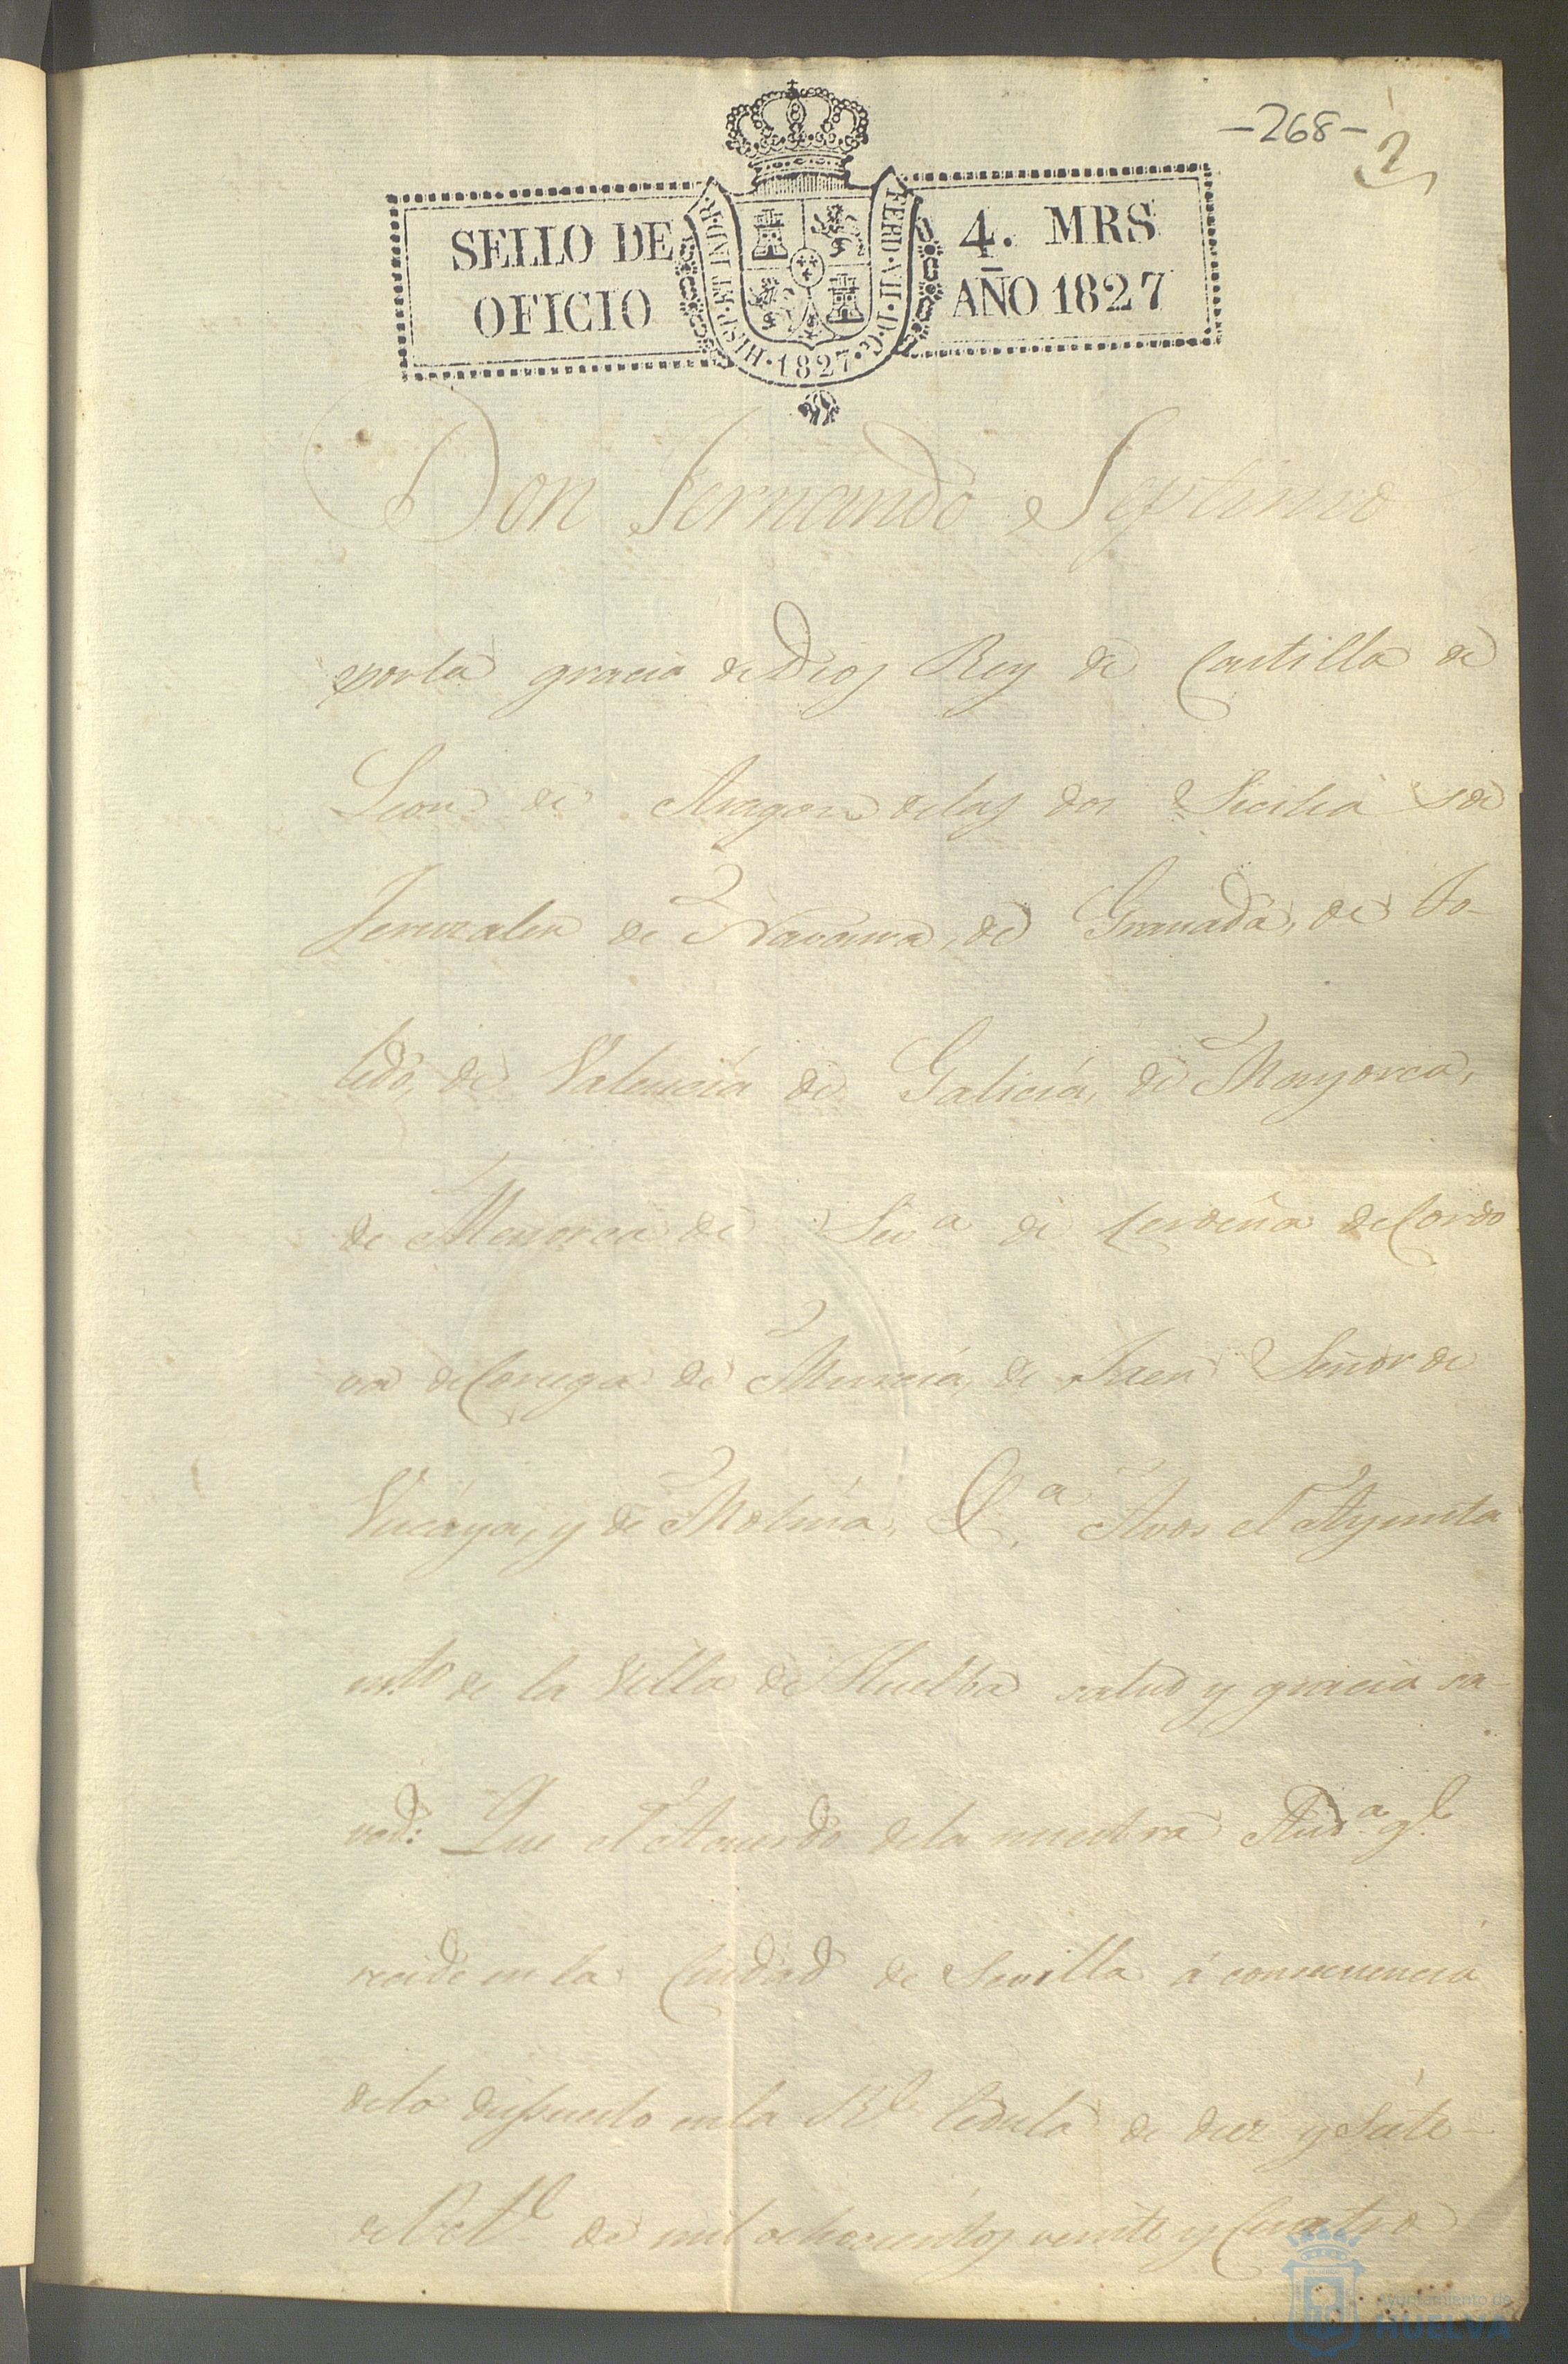 -268-
2
SELLO DE
OFICIO
HISP. ET IND. R.
FERD. VII. D. G.
1827
4. MRS
AÑO 1827
Don Fernando Septimo
porla gracia de Dios Rey de Castilla de
Leon de Aragon delas dos Sicilias de
Jeruzalen de Navarra, de Granada, de To-
ledo, de Valencia de Galicia, de Mayorca,
de Menorca de Sev.a de Cerdeña de Cordo
va de Corcega de Murcia, de Jaen Señor de
Vizcaya, y de Molina, &.a Avos el Ayunta
m.to de la Villa de Huelba salud y gracia sa-
ved: Que el Acuerdo dela nuestra Aud.a q.e
recide en la Ciudad de Sevilla á consecuencia
delo dispuesto enla R.l Cedula de diez y Siete
de Oct.e de mil ochocientos veinte y Cuatro
Ayuntamiento de
HUELVA